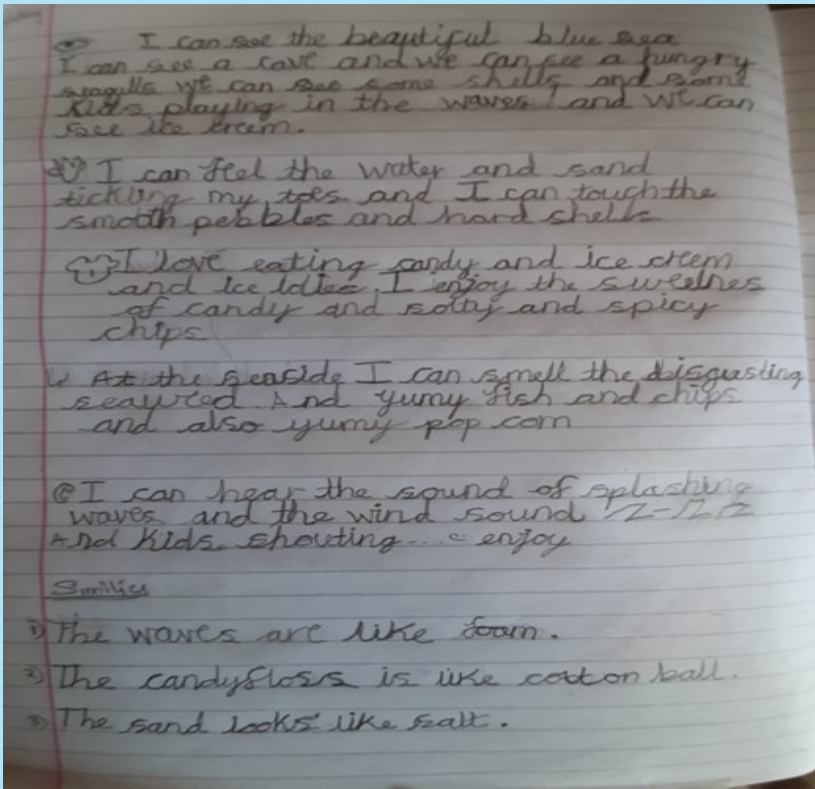 I can see the beautiful blue sea
I can see a cave and we can see a hungry
seagulls we can see some shells and some
kids playing in the waves! and we can
see ice creem.
I can feel the water and sand
tickling my toes and I can touch the
smooth pebbles and hard shells
I love eating candy and ice creem
and ice lolies. I enjoy the sweetnes
of candy and salty and spicy
chips
At the seaside I can smell the disgusting
seaweed. And yumy fish and chips
and also yumy pop corn
I can hear the sound of splashing
waves and the wind sound
And kids shouting... enjoy
Similies
1) The waves are like foam.
2) The candyfloss is like cotton ball.
3) The sand looks like salt.